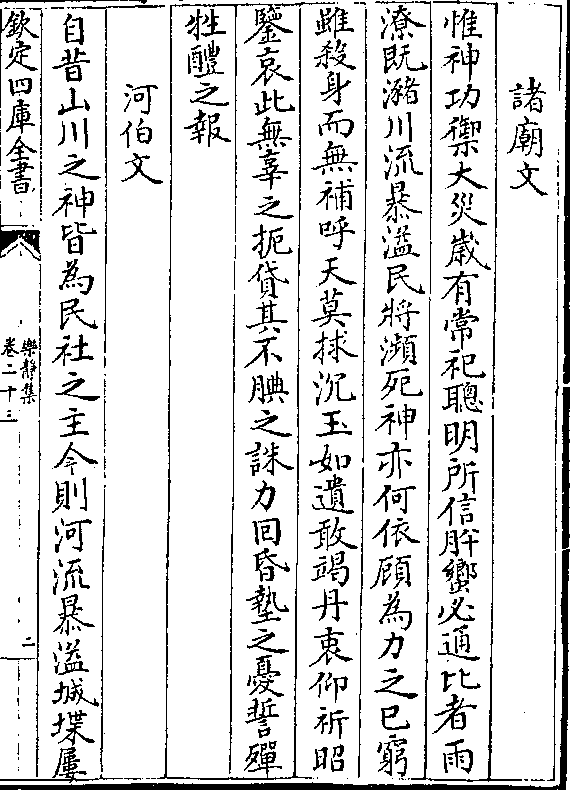 諸廟文
惟神功禦大災歳有常祀聰明所信肸蠁必通比者雨
潦既瀦川流暴溢民將瀕死神亦何依顧為力之已窮
雖殺身而無補呼天莫捄沉玉如遺敢竭丹衷仰祈昭
鑒哀此無辜之扼貸其不腆之誅力回昏墊之憂誓殫
牲醴之報
河伯文
自昔山川之神皆為民社之主今則河流暴溢城堞屢
欽定四庫全書
樂靜集
卷二十三
二